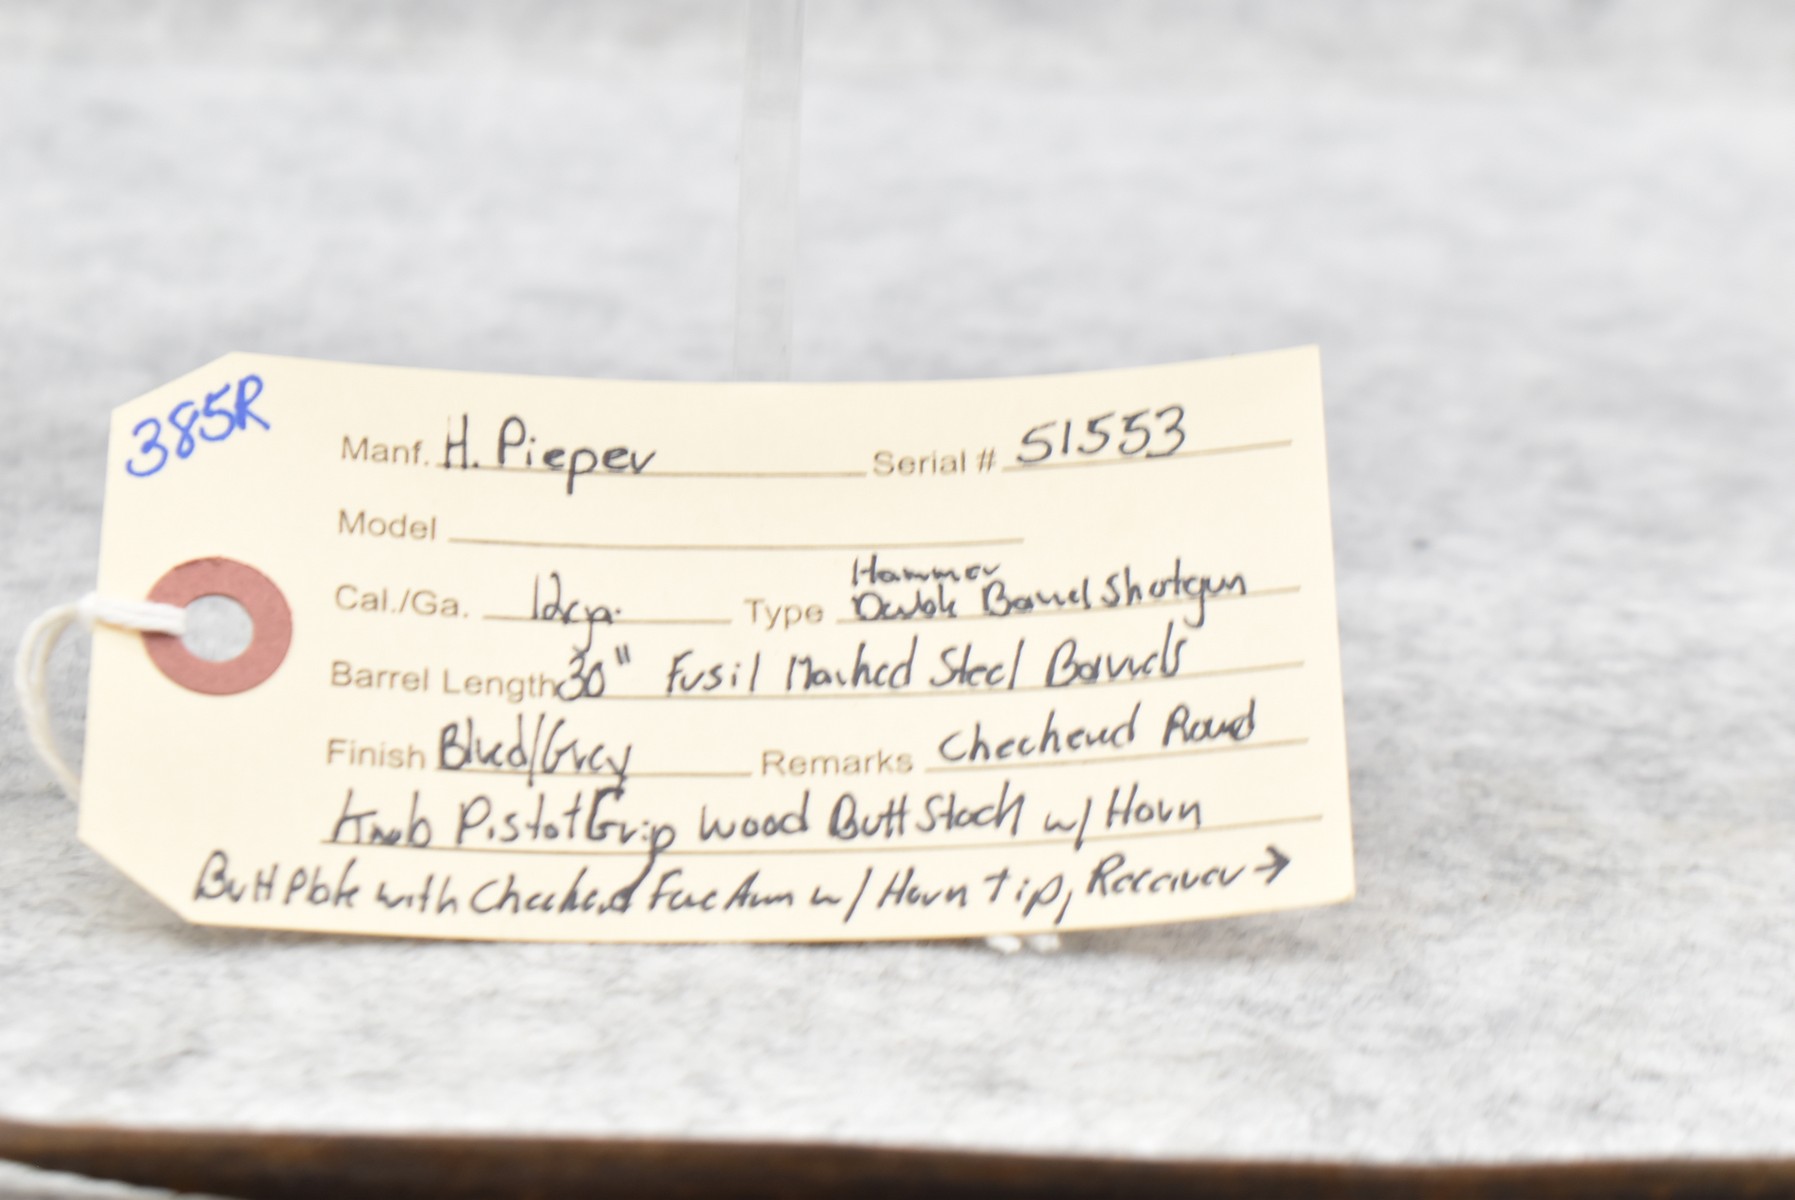 385R
Manf. H. Pieper Serial # 51553
Model
Cal./Ga. 12ga. Type Hammer Double Barrel Shotgun
Barrel Length 30" Fusil Marked Steel Barrels
Finish Blued/Grey Remarks Checkered Round
Knob Pistol Grip Wood Butt Stock w/ Horn
Butt Plate with Checkered Fore Arm w/ Horn Tip, Receiver →